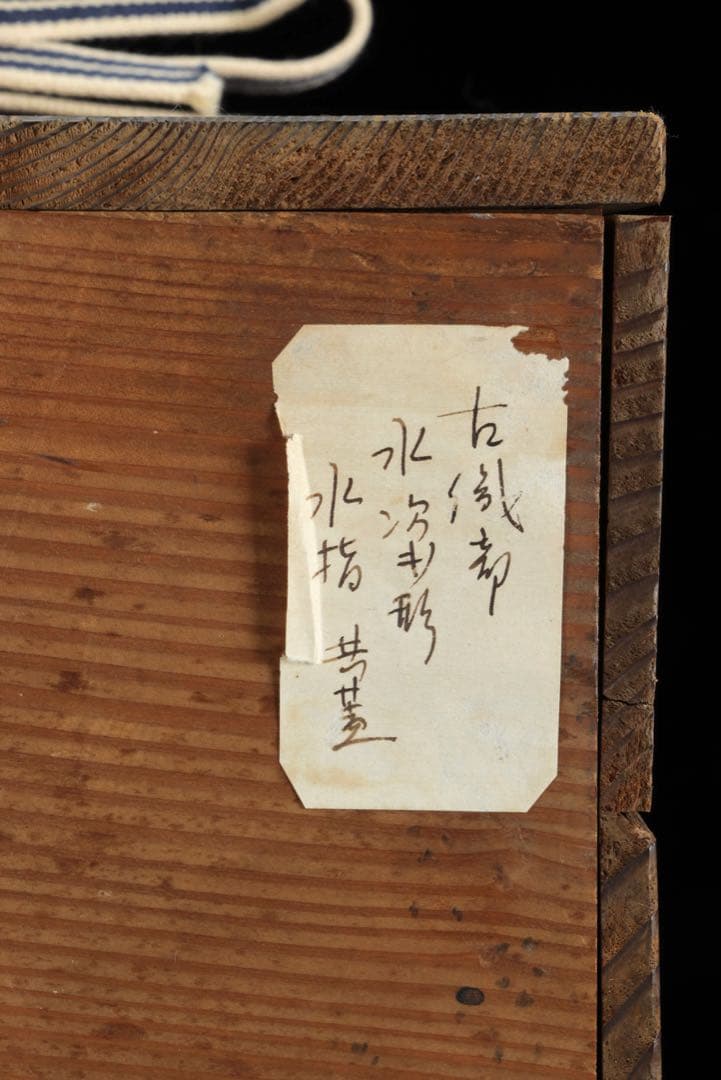 古織部
水次形
水指 共蓋